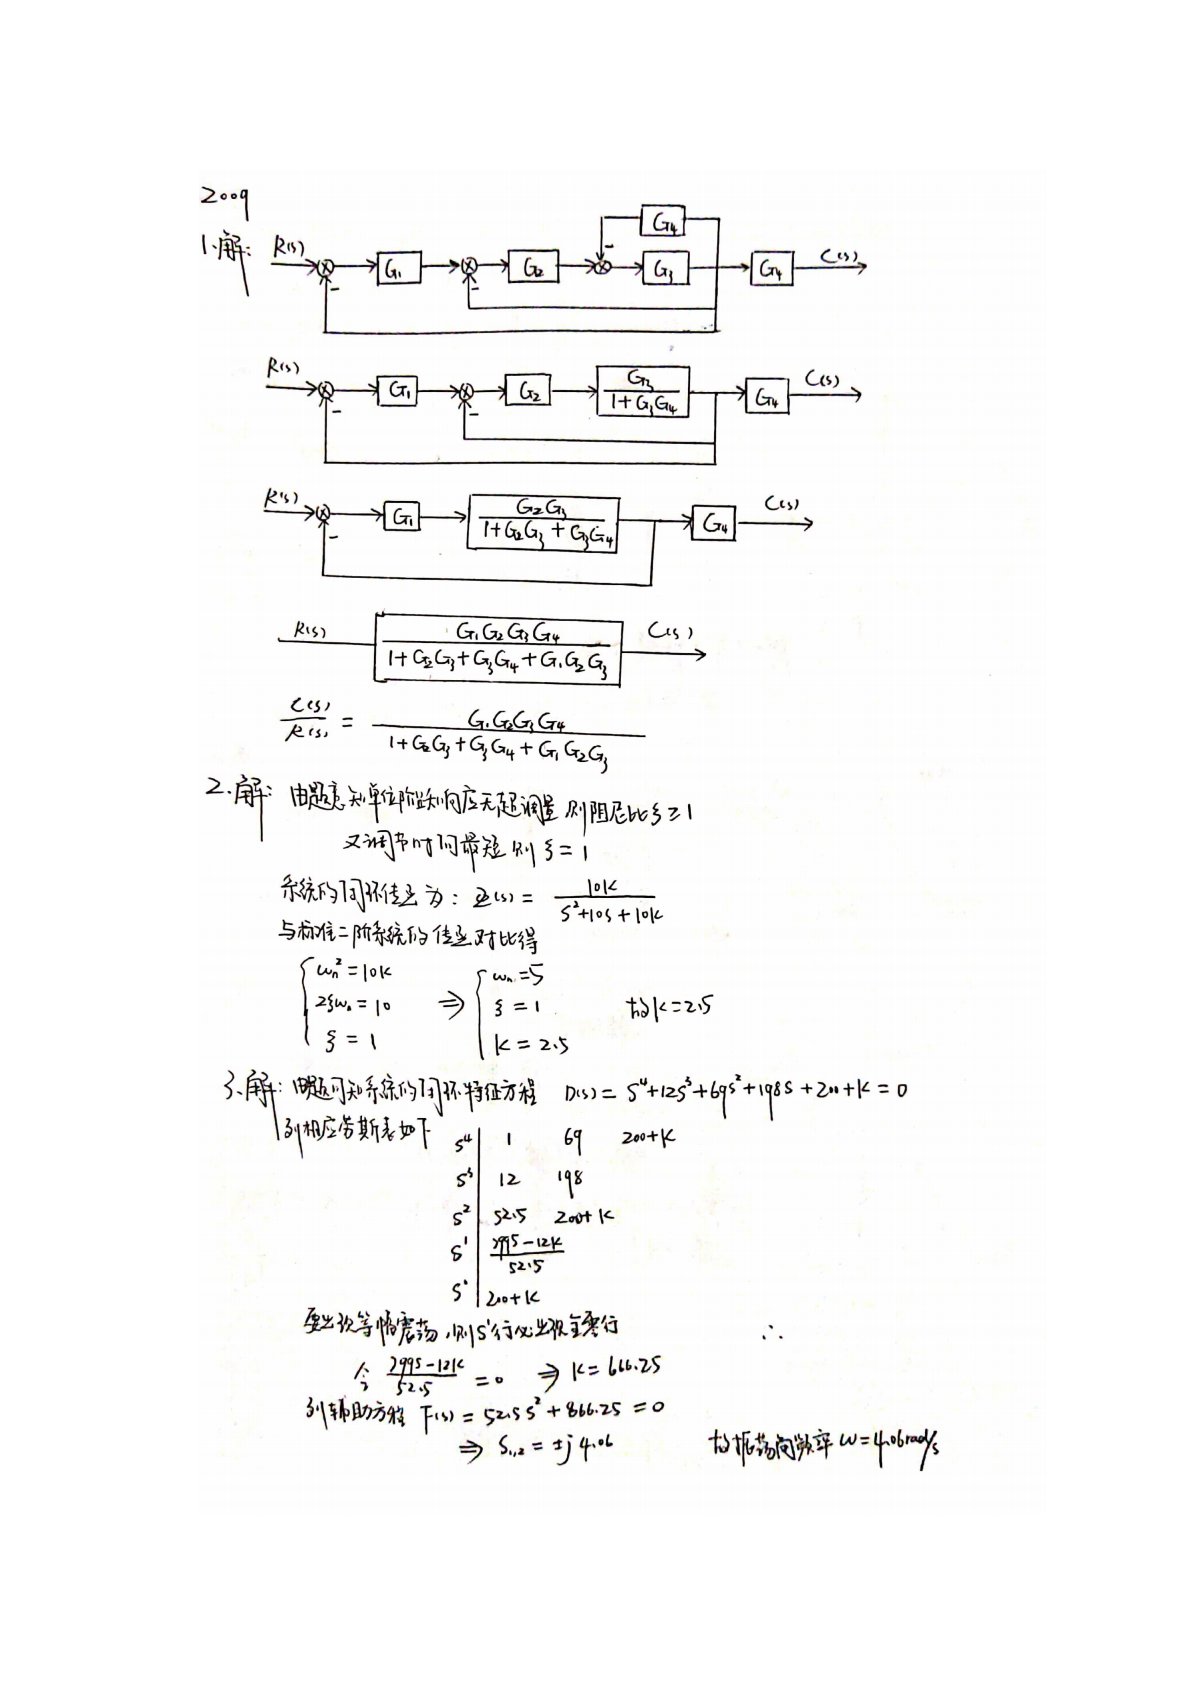 2009
1、解:
R(s) G₁ G₂ G₃ G₄ G₄ C(s)
R(s) G₁ G₂ G₃/(1+G₃G₄) G₄ C(s)
R(s) G₁ G₂G₃/(1+G₂G₃+G₃G₄) G₄ C(s)
R(s) G₁G₂G₃G₄/(1+G₂G₃+G₃G₄+G₁G₂G₃) C(s)
C(s)/R(s) = G₁G₂G₃G₄/(1+G₂G₃+G₃G₄+G₁G₂G₃)
2、解: 由题意知单位阶跃响应无超调量 则阻尼比ξ≥1
又调节时间最短 则 ξ=1
系统的闭环传函为: Φ(s) = 10K/(S²+10S+10K)
与标准二阶系统的传函对比得
{ ωn²=10K 2ξωn=10 ξ=1 ⇒ { ωn=5 ξ=1 K=2.5 故K=2.5
3、解: 由题可知系统的闭环特征方程 D(s)= S⁴+12S³+69S²+198S+200+K=0
列相应劳斯表如下
S⁴ 1 69 200+K
S³ 12 198
S² 52.5 200+K
S¹ (7995-12K)/52.5
S⁰ 200+K
要出现等幅震荡,则S¹行必出现全零行
∴
令 (7995-12K)/52.5 = 0 ⇒ K=666.25
列辅助方程 F(s)=52.5S²+866.25=0
⇒ S₁,₂=±j4.06 故振荡角频率 ω=4.06rad/s